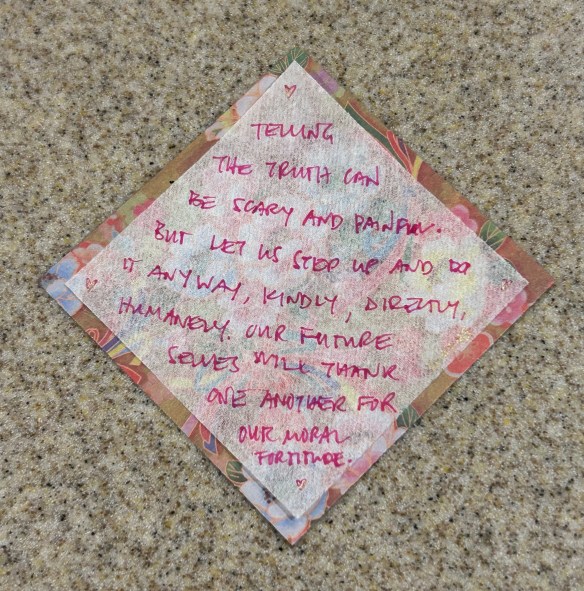 TELLING
THE TRUTH CAN
BE SCARY AND PAINFUL.
BUT LET US STEP UP AND DO
IT ANYWAY, KINDLY, DIRECTLY,
HUMANELY. OUR FUTURE
SELVES WILL THANK
ONE ANOTHER FOR
OUR MORAL
FORTITUDE.